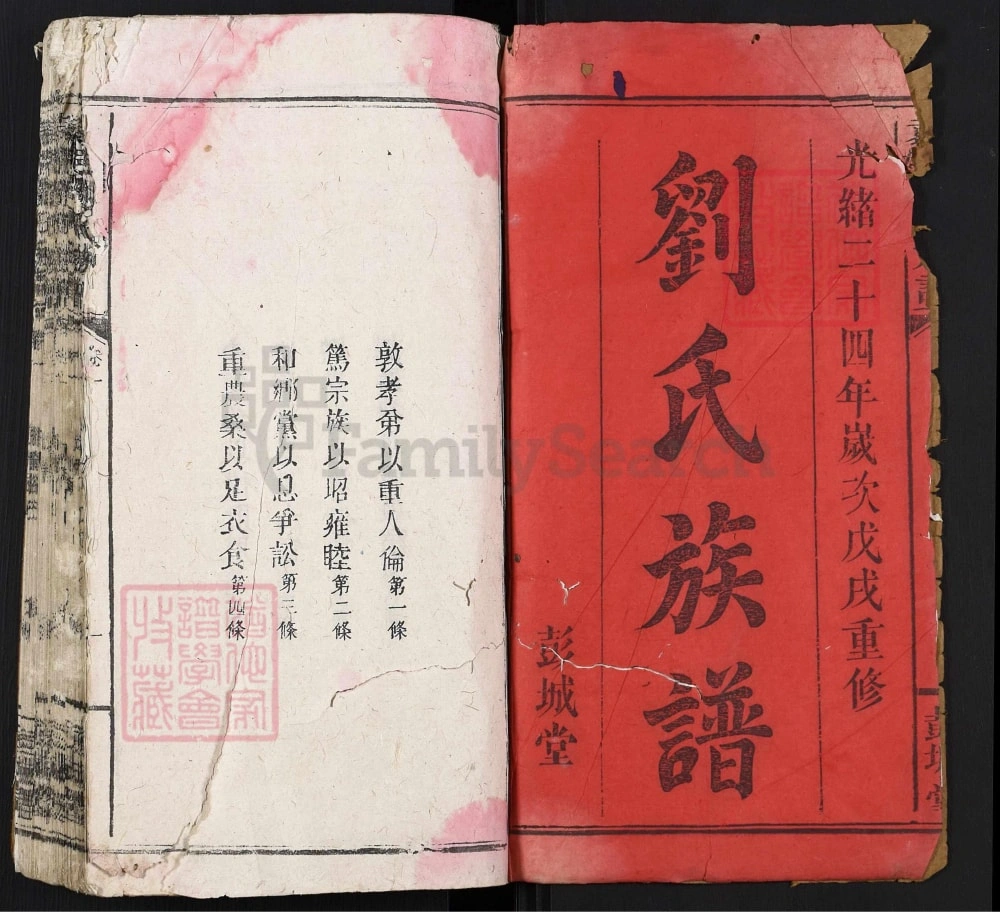 光緒二十四年歲次戊戌重修
劉氏族譜
彭城堂
敦孝弟以重人倫第一條
篤宗族以昭雍睦第二條
和鄉黨以息爭訟第三條
重農桑以足衣食第四條
卷一
一
FamilySearch
譜學會
收藏
彭城堂